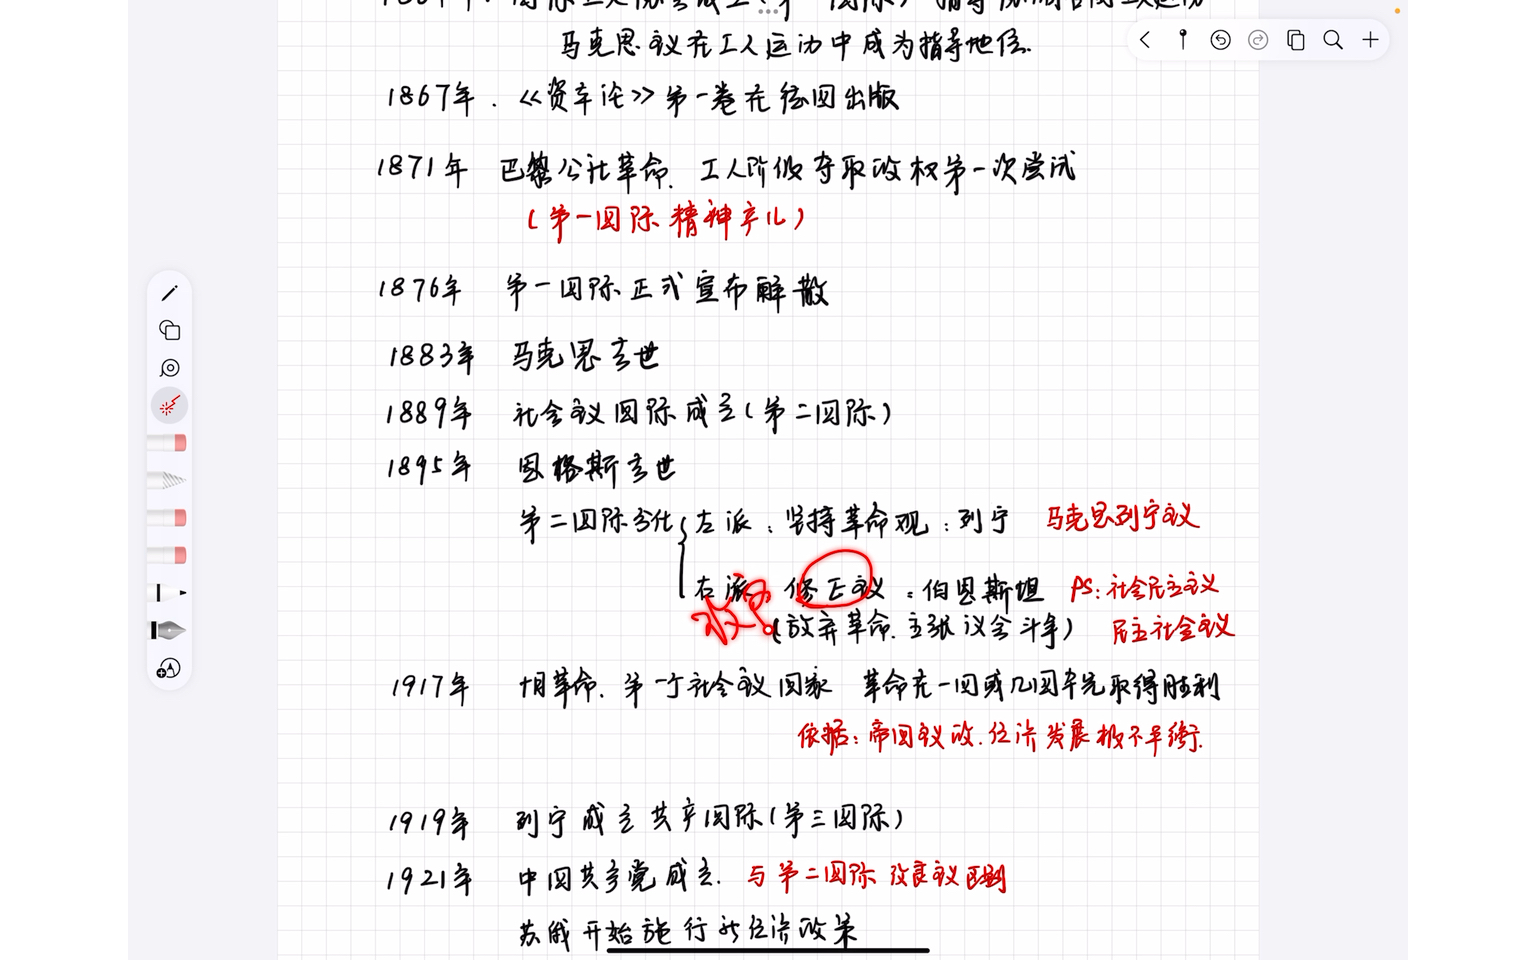 马克思主义在工人运动中成为指导地位.
1867年.《资本论》第一卷在德国出版
1871年 巴黎公社革命. 工人阶级夺取政权第一次尝试
(第一国际精神产儿)
1876年 第一国际正式宣布解散
1883年 马克思去世
1889年 社会主义国际成立(第二国际)
1895年 恩格斯去世
第二国际分化 左派:坚持革命观:列宁 马克思列宁主义
右派 修正主义:伯恩斯坦 PS:社会民主主义
(放弃革命.主张议会斗争) 民主社会主义
1917年 十月革命.第一个社会主义国家 革命在一国或几国率先取得胜利
依据:帝国主义政.经济发展极不平衡.
1919年 列宁成立共产国际(第三国际)
1921年 中国共产党成立. 与第二国际改良主义区别
苏俄开始施行新经济政策